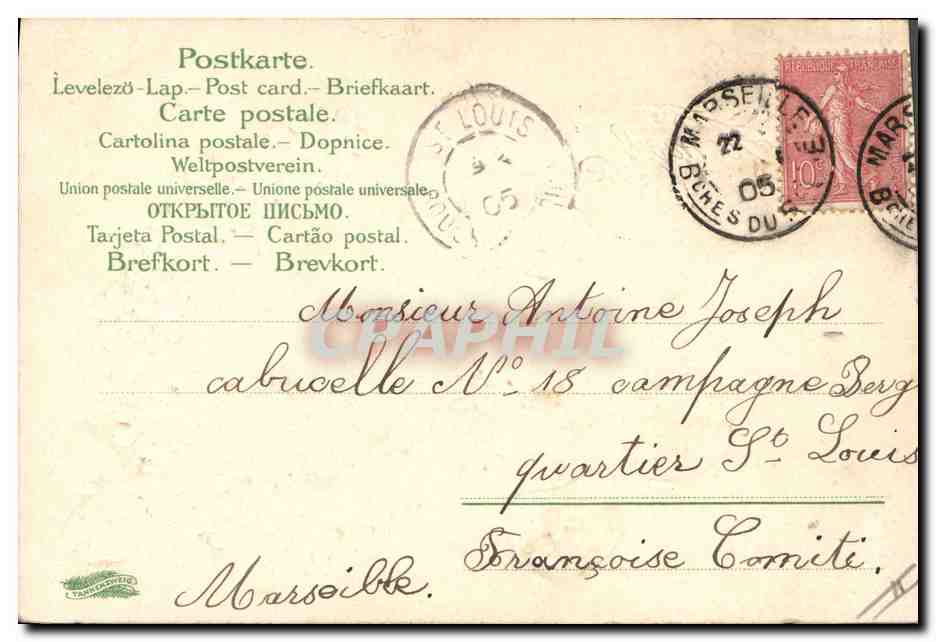 Postkarte.
Levelező-Lap.— Post card.— Briefkaart.
Carte postale.
Cartolina postale.— Dopnice.
Weltpostverein.
Union postale universelle.— Unione postale universale.
ОТКРЫТОЕ ПИСЬМО.
Tarjeta Postal. — Cartão postal.
Brefkort. — Brevkort.
ST LOUIS
05
MARSEILLE
22
05
BCHES DU R
REPUBLIQUE FRANÇAISE
10c
MARS
BCHE
CPAPHIL
Monsieur Antoine Joseph
cabucelle No 18 campagne Berg
quartier St. Louis
Françoise Comiti.
Marseille.
TANNENZWEIG